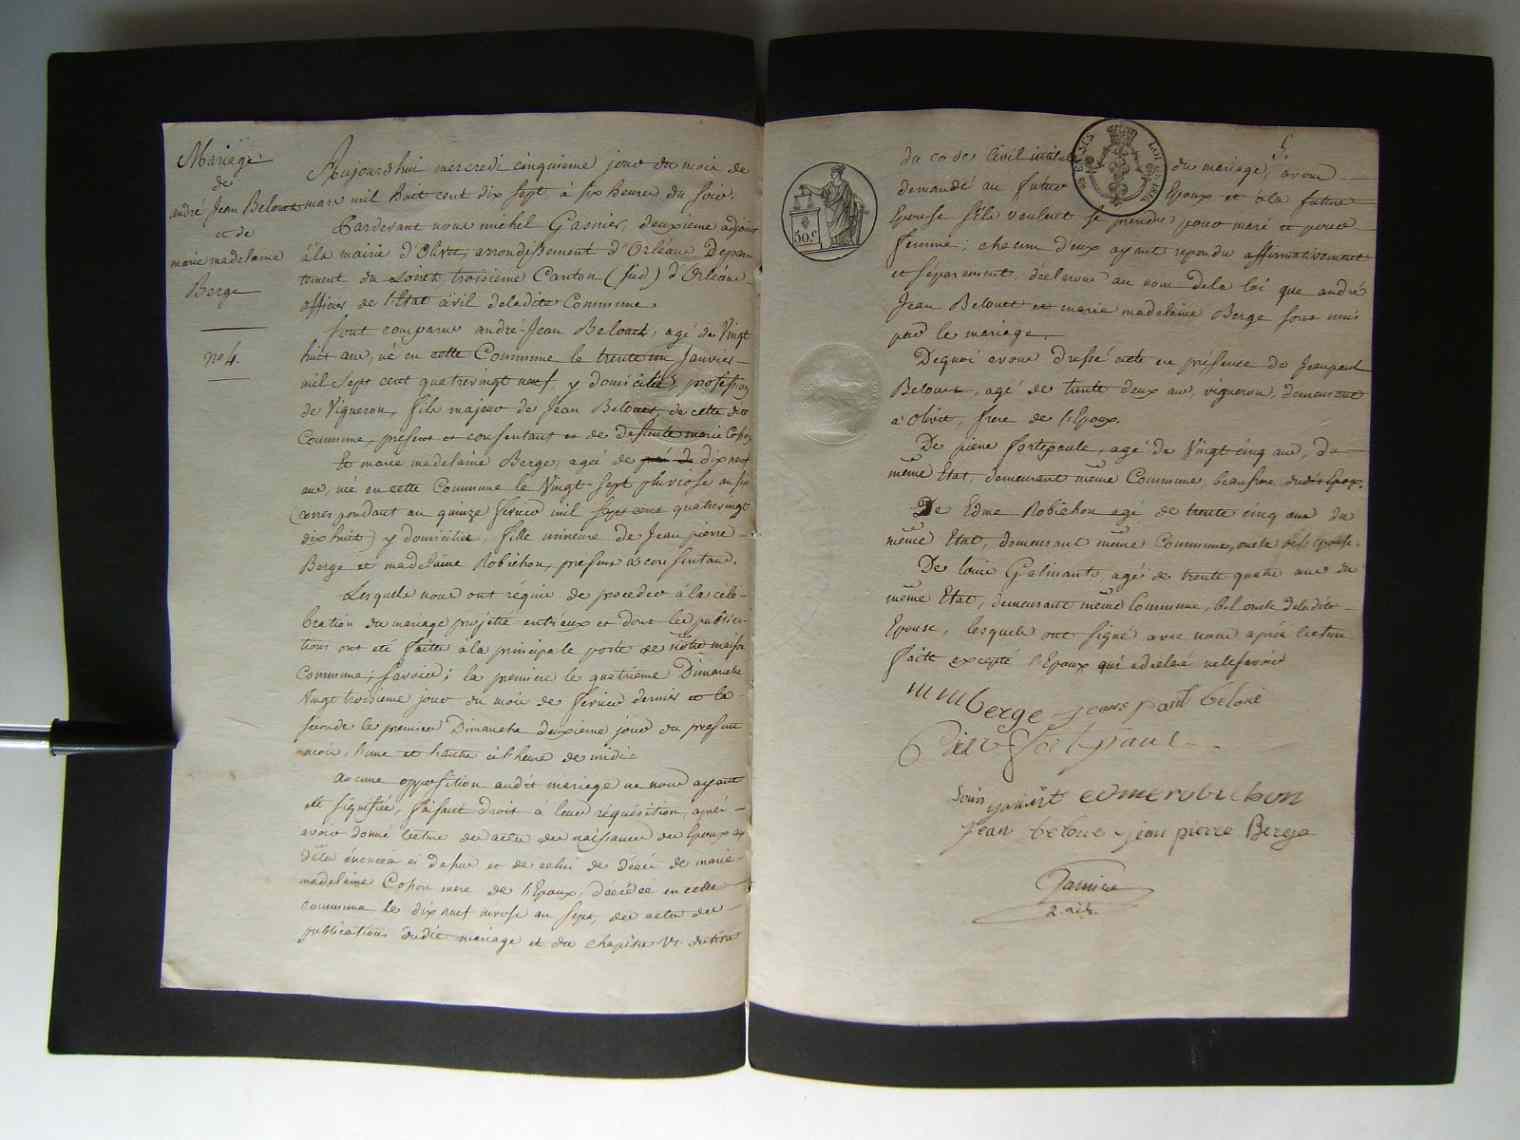 Mariage
de
andré Jean Belouet
et de
marie madelaine
Berge
no 4.
Aujourd'hui mercredi cinquieme jour du mois de
mars mil huit cent dix sept, à six heures du soir.
Pardevant nous michel Gasnier, deuxieme adjoint
à la mairie d'Olivet, arrondissement d'Orléans Depar
tement du Loiret troisieme Canton (sud) d'Orléans
officier de l'Etat civil de ladite Commune.
Sont comparus andré Jean Belouet, agé de Vingt
huit ans, né en cette Commune le trente un Janvier
mil sept cent quatrevingt neuf, y domicilié, profession
de Vigneron, fils majeur de Jean Belouet, de cette dite
Commune, present et consentant et de defunte marie
Et marie madelaine Berge, agée de dix neuf
ans, née en cette Commune le Vingt-sept pluviose an six
(correspondant au quinze fevrier mil sept cent quatrevingt
dix huit) y domiciliée, fille mineure de Jean pierre
Berge et madelaine Robichon, presens et consentans.
Lesquels nous ont requis de proceder à la célé-
bration du mariage projetté entr'eux et dont les publica-
tions ont été faites à la principale porte de notre maison
Commune, savoir; la premiere le quatrieme Dimanche
Vingt troisieme jour du mois de fevrier dernier et la
seconde le premier Dimanche deuxieme jour du present
mois, l'une et l'autre à l'heure de midi.
aucune opposition audit mariage ne nous ayant
été signifiée, faisant droit à leur réquisition, après
avoir donné lecture des actes de naissance des Epoux
et de celui de décès de marie
madelaine mere de l'Epoux, décédée en cette
commune le dix neuf nivose an sept, des actes de
publications dudit mariage et du chapitre VI du titre
du code Civil intitulé du mariage, avons
demandé au futur Epoux et à la future
Epouse s'ils veulent se prendre pour mari et pour
femme; chacun d'eux ayant repondu affirmativement
et séparement, déclarons au nom de la loi que andré
Jean Belouet et marie madelaine Berge sont unis
par le mariage.
Dequoi avons dressé acte en présence de Jean paul
Belouet, agé de trente deux ans, vigneron, demeurant
à Olivet, frere de l'Epoux.
De pierre Fortepaule, agé de Vingt cinq ans, du
même Etat, demeurant même Commune, beaufrere, dudit Epoux.
De Edme Robichon agé de trente cinq ans du
même Etat, demeurant même Commune, oncle de l'epouse.
De louis Galinant, agé de trente quatre ans du
même Etat, demeurant même Commune, bel oncle de ladite
Epouse, lesquels ont signé avec nous après lecture
faite excepté l'Epoux qui a déclaré ne le savoir
50c
m m berge jean paul beloue
louis edme robichon
jean beloue jean pierre Berge
Gasnier
2. adj.